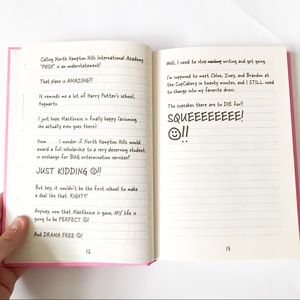 Calling North Hampton Hills International Academy
"POSH" is an understatement!
That place is AMAZING!!!
It reminds me a lot of Harry Potter's school,
Hogwarts.
I just hope MacKenzie is finally happy fassinning
she actually even goes there!
Hmm . . . I wonder if North Hampton Hills would
award a full scholarship to a very deserving student
in exchange for BUG extermination services?
JUST KIDDING ☺!!
But hey, it wouldn't be the first school to make
a deal like that RIGHT?!
Anyway, now that MacKenzie is gone, MY life is
going to be PERFECT ☺!
And DRAMA FREE ☺!
12
Well, I need to stop writing and get going.
I'm supposed to meet Chloe, Zoey, and Brandon at
the CupCakery in twenty minutes, and I STILL need
to change into my favorite dress.
The cupcakes there are to DIE for!!
SQUEEEEEEEE!
☺!!
13